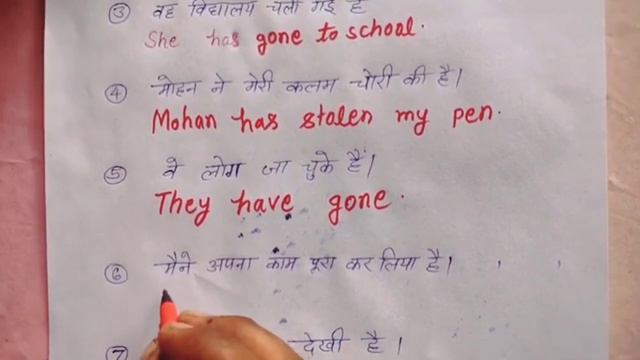 ③ वह विद्यालय चली गई है
She has gone to school.
④ मोहन ने मेरी कलम चोरी की है।
Mohan has stolen my pen.
⑤ वे लोग जा चुके हैं।
They have gone.
⑥ मैंने अपना काम पूरा कर लिया है।
⑦ देखी है।